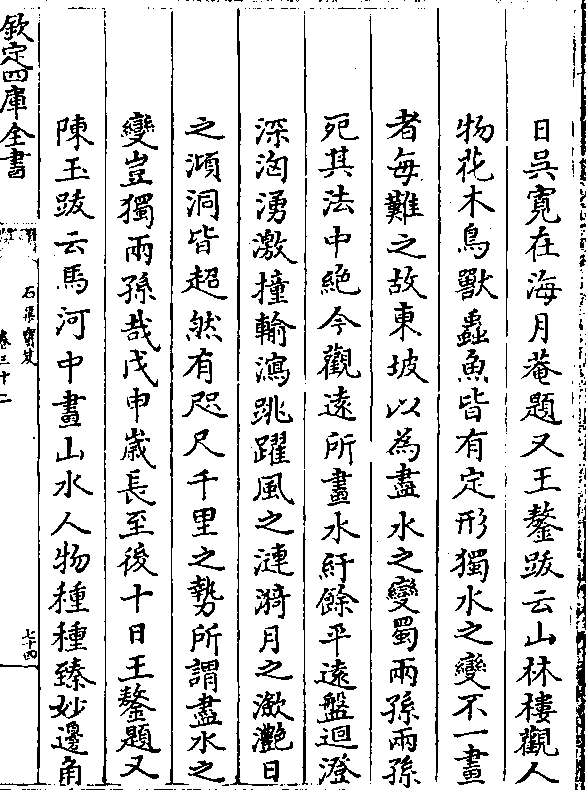 日吳寛在海月菴題又王鏊跋云山林樓觀人
物花木鳥獸蟲魚皆有定形獨水之變不一畫
者每難之故東坡以為盡水之變蜀兩孫兩孫
死其法中絕今觀遠所畫水紆餘平遠盤迴澄
深洶湧激撞輸瀉跳躍風之漣漪月之瀲灧日
之澒洞皆超然有咫尺千里之勢所謂盡水之
變豈獨兩孫哉戊申嵗長至後十日王鏊題又
陳玉跋云馬河中畫山水人物種種臻妙邊角
欽定四庫全書
石渠寶笈
卷三十二
七十四